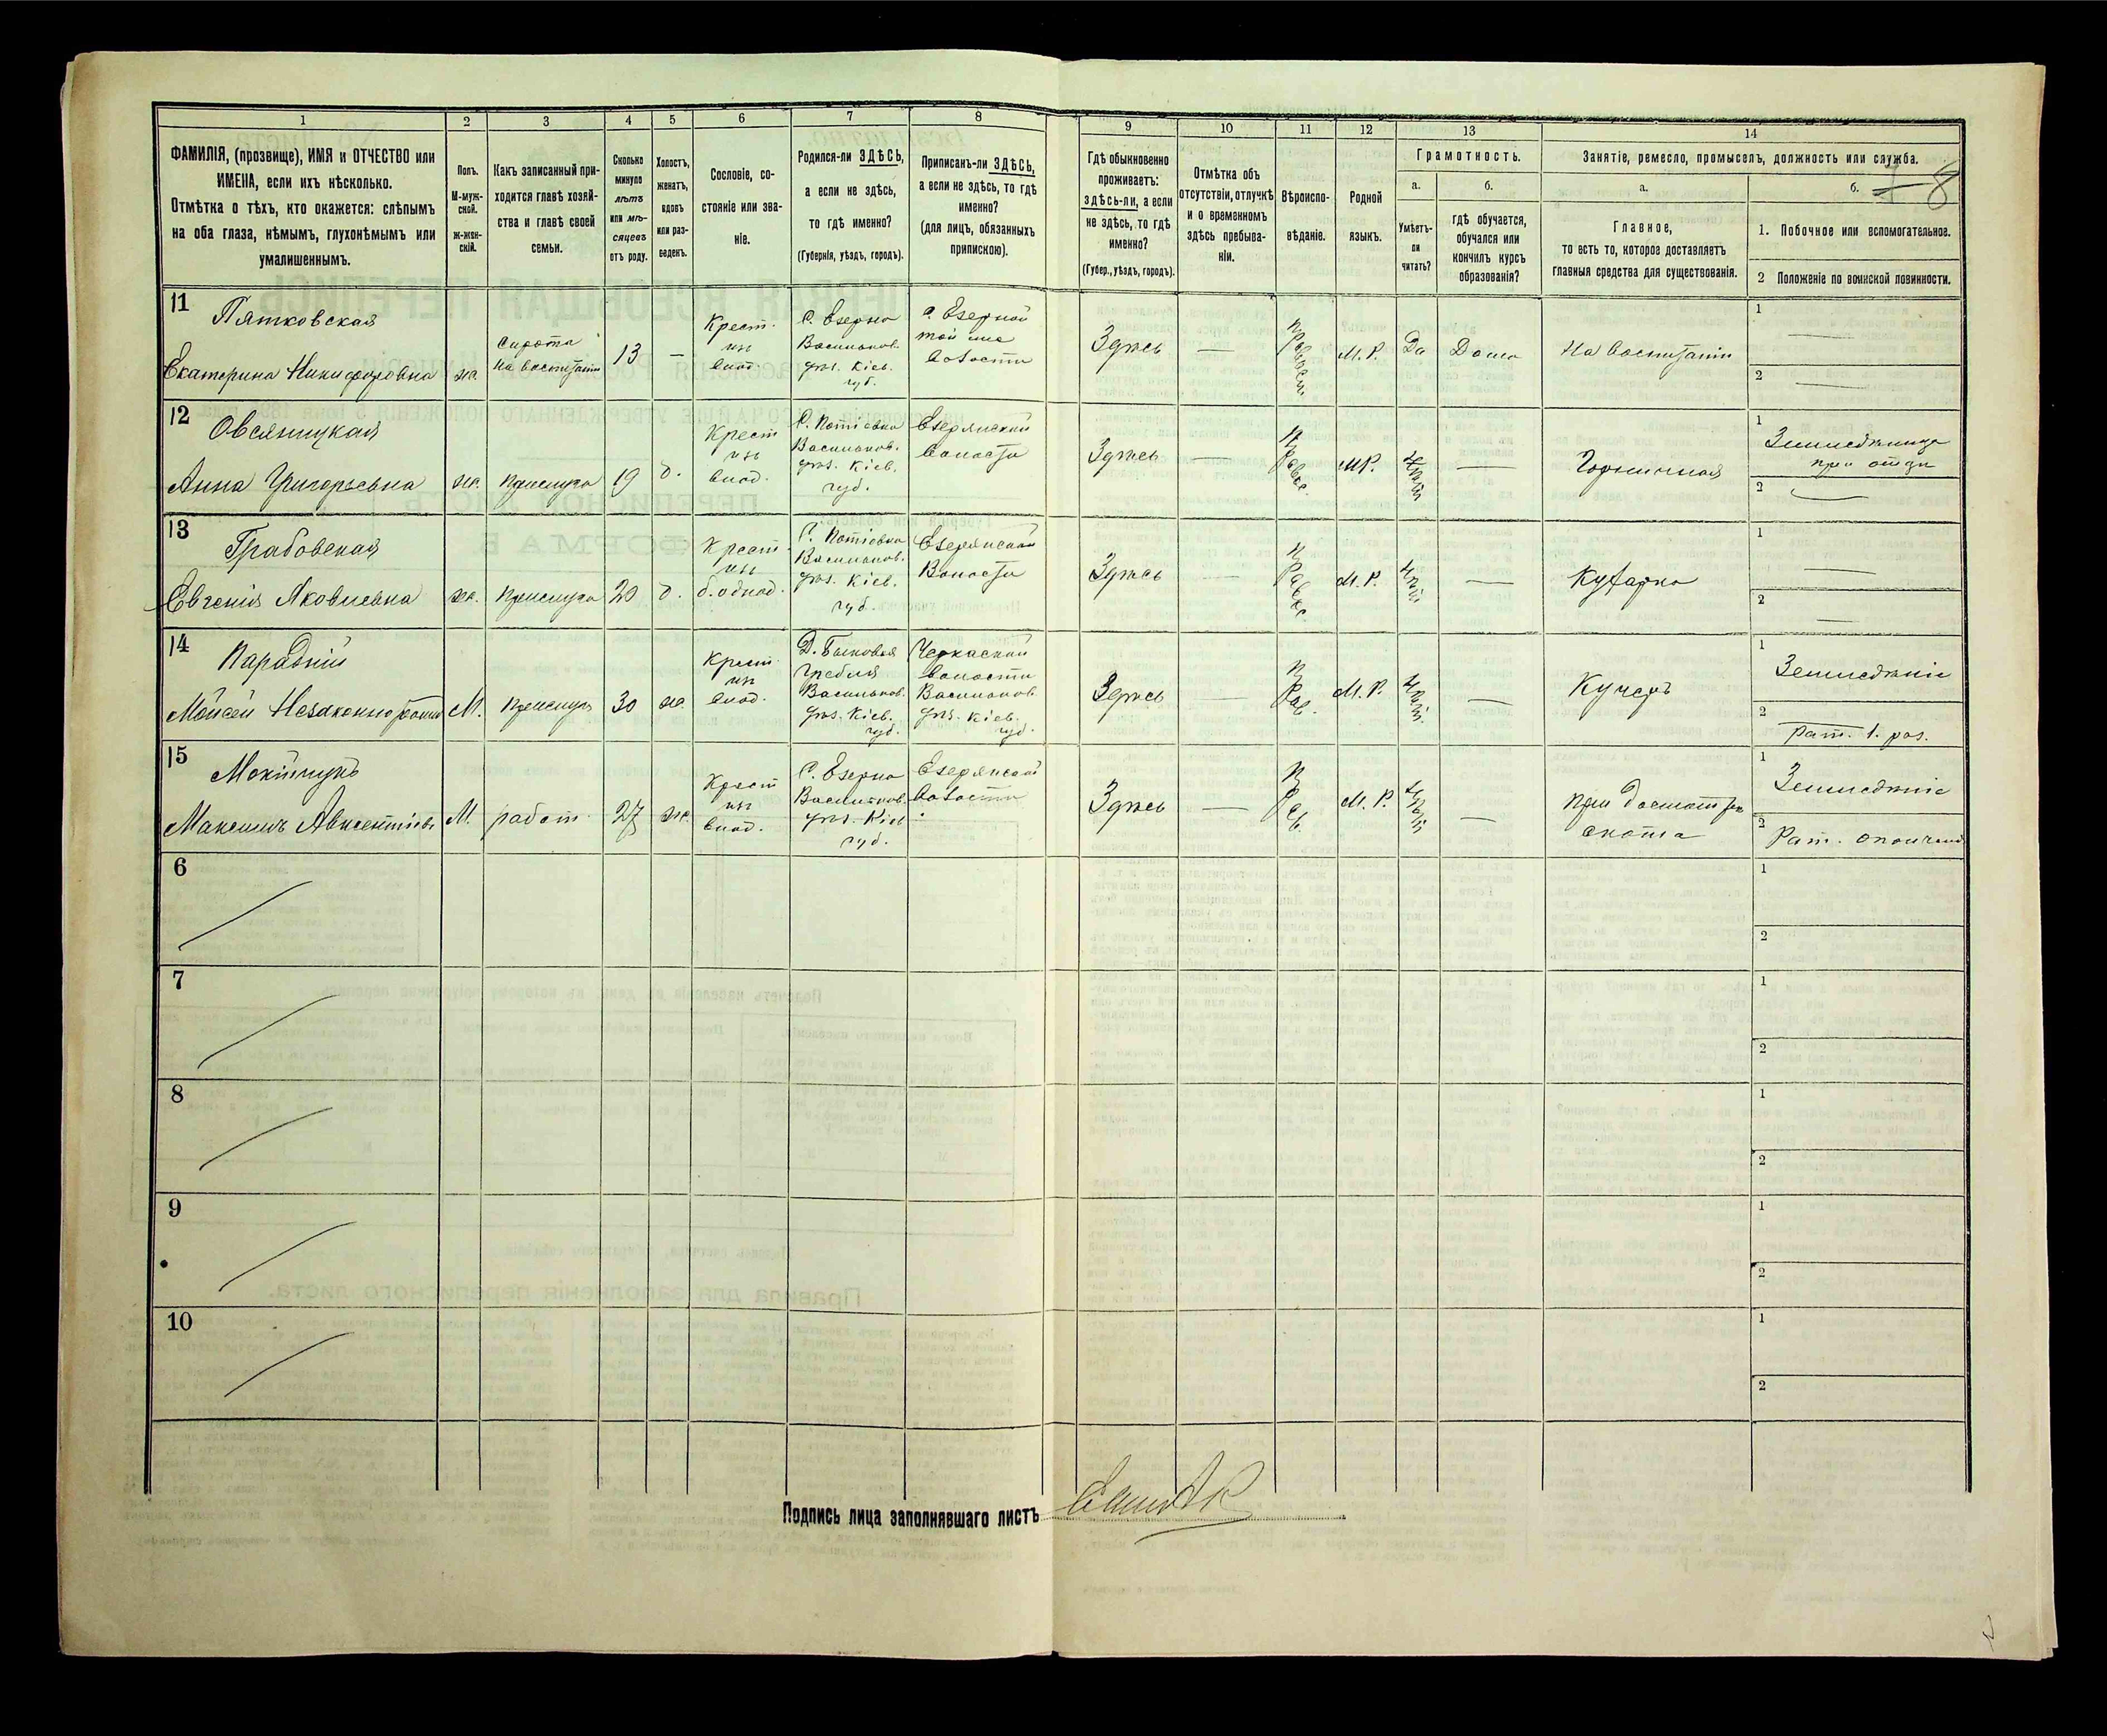 1 2 3 4 5 6 7 8 9 10 11 12 13 14
ФАМИЛІЯ, (прозвище), ИМЯ и ОТЧЕСТВО или
ИМЕНА, если ихъ нѣсколько.
Отмѣтка о тѣхъ, кто окажется: слѣпымъ
на оба глаза, нѣмымъ, глухонѣмымъ или
умалишеннымъ.
Полъ.
М-муж-
ской.
Ж-жен-
скій.
Какъ записанный при-
ходится главѣ хозяй-
ства и главѣ своей
семьи.
Сколько
минуло
лѣтъ
или мѣ-
сяцевъ
отъ роду.
Холостъ,
женатъ,
вдовъ
или раз-
веденъ.
Сословіе, со-
стояніе или зва-
ніе.
Родился-ли ЗДѢСЬ,
а если не здѣсь,
то гдѣ именно?
(Губернія, уѣздъ, городъ).
Приписанъ-ли ЗДѢСЬ,
а если не здѣсь, то гдѣ
именно?
(для лицъ, обязанныхъ
припискою).
Гдѣ обыкновенно
проживаетъ:
здѣсь-ли, а если
не здѣсь, то гдѣ
именно?
(Губер., уѣздъ, городъ).
Отмѣтка объ
отсутствіи, отлучкѣ
и о временномъ
здѣсь пребыва-
ніи.
Вѣроиспо-
вѣданіе.
Родной
языкъ.
Грамотность.
а.
Умѣетъ-
ли
читать?
б.
гдѣ обучается,
обучался или
кончилъ курсъ
образованія?
Занятіе, ремесло, промыселъ, должность или служба.
а.
Главное,
то есть то, которое доставляетъ
главныя средства для существованія.
б.
8
1. Побочное или вспомогательное.
2 Положеніе по воинской повинности.
11
Пятковская
Екатерина Никифоровна
ж.
Сирота
на воспитаніи
13
—
Крест.
изъ
влад.
С. Езерна
Васильков.
уѣз. Кіев.
губ.
С. Езерной
той же
волости
Здѣсь
—
Правосл
М. Р.
Да
Дома
На воспитаніи
1 —
2 —
12
Овсяницкая
Анна Григорьевна
ж.
прислуга
19
д.
Крест
изъ
влад.
С. Потіевка
Васильков.
уѣз. Кіев.
губ.
Езерянской
волости
Здѣсь
—
Правос.
М.Р.
нѣтъ
—
Горничная
1
Земледѣлица
при отцѣ
2 —
13
Грабовская
Евгенія Яковлевна
ж.
прислуга
20
д.
Крест.
изъ
б. однод.
С. Потіевка
Васильков.
уѣз. Кіев.
губ.
Езерянской
Волости
Здѣсь
—
Правос.
М. Р.
нѣтъ
—
Кухарка
1 —
2 —
14
Парадній
Мойсей Незаконнорожд
М.
прислуга
30
ж.
Крест.
изъ
влад.
Д. Быковая
Гребля
Васильков.
уѣз. Кіев.
губ.
Черкаской
волости
Васильков.
уѣз. Кіев.
губ.
Здѣсь
—
Прав.
М. Р.
нѣт.
—
Кучеръ
1
Земледѣліе
2
Рат. 1. раз.
15
Максимъ Авксентіевъ
М.
работ.
27
ж.
Крест
изъ
влад.
С. Езерна
Васильков.
уѣз. Кіев
губ.
Езерянской
волости
Здѣсь
—
Прав.
М. Р.
нѣтъ
—
скота
1
Земледѣліе
2
Рат. ополчен
6
1
2
7
1
2
8
1
2
9
1
2
10
1
2
Подпись лица заполнявшаго листъ